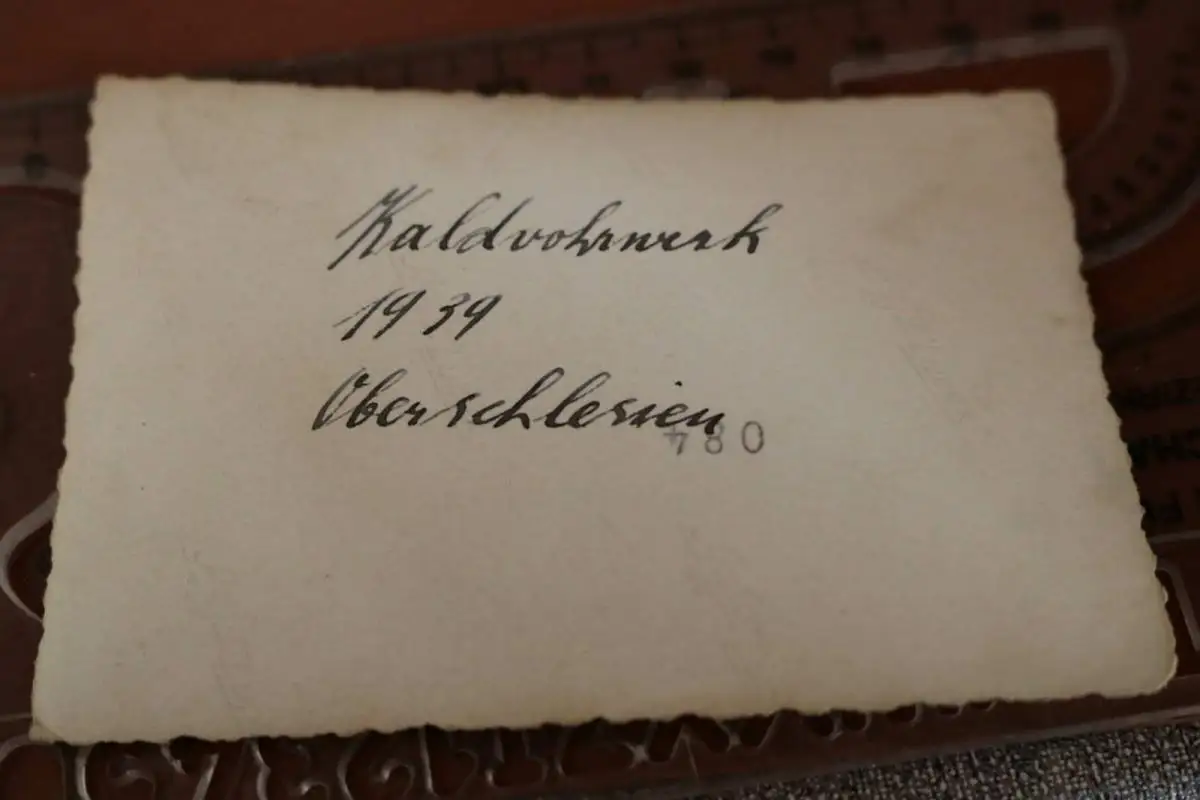 Kaldvohrwerk
1939
Oberschlesien
480